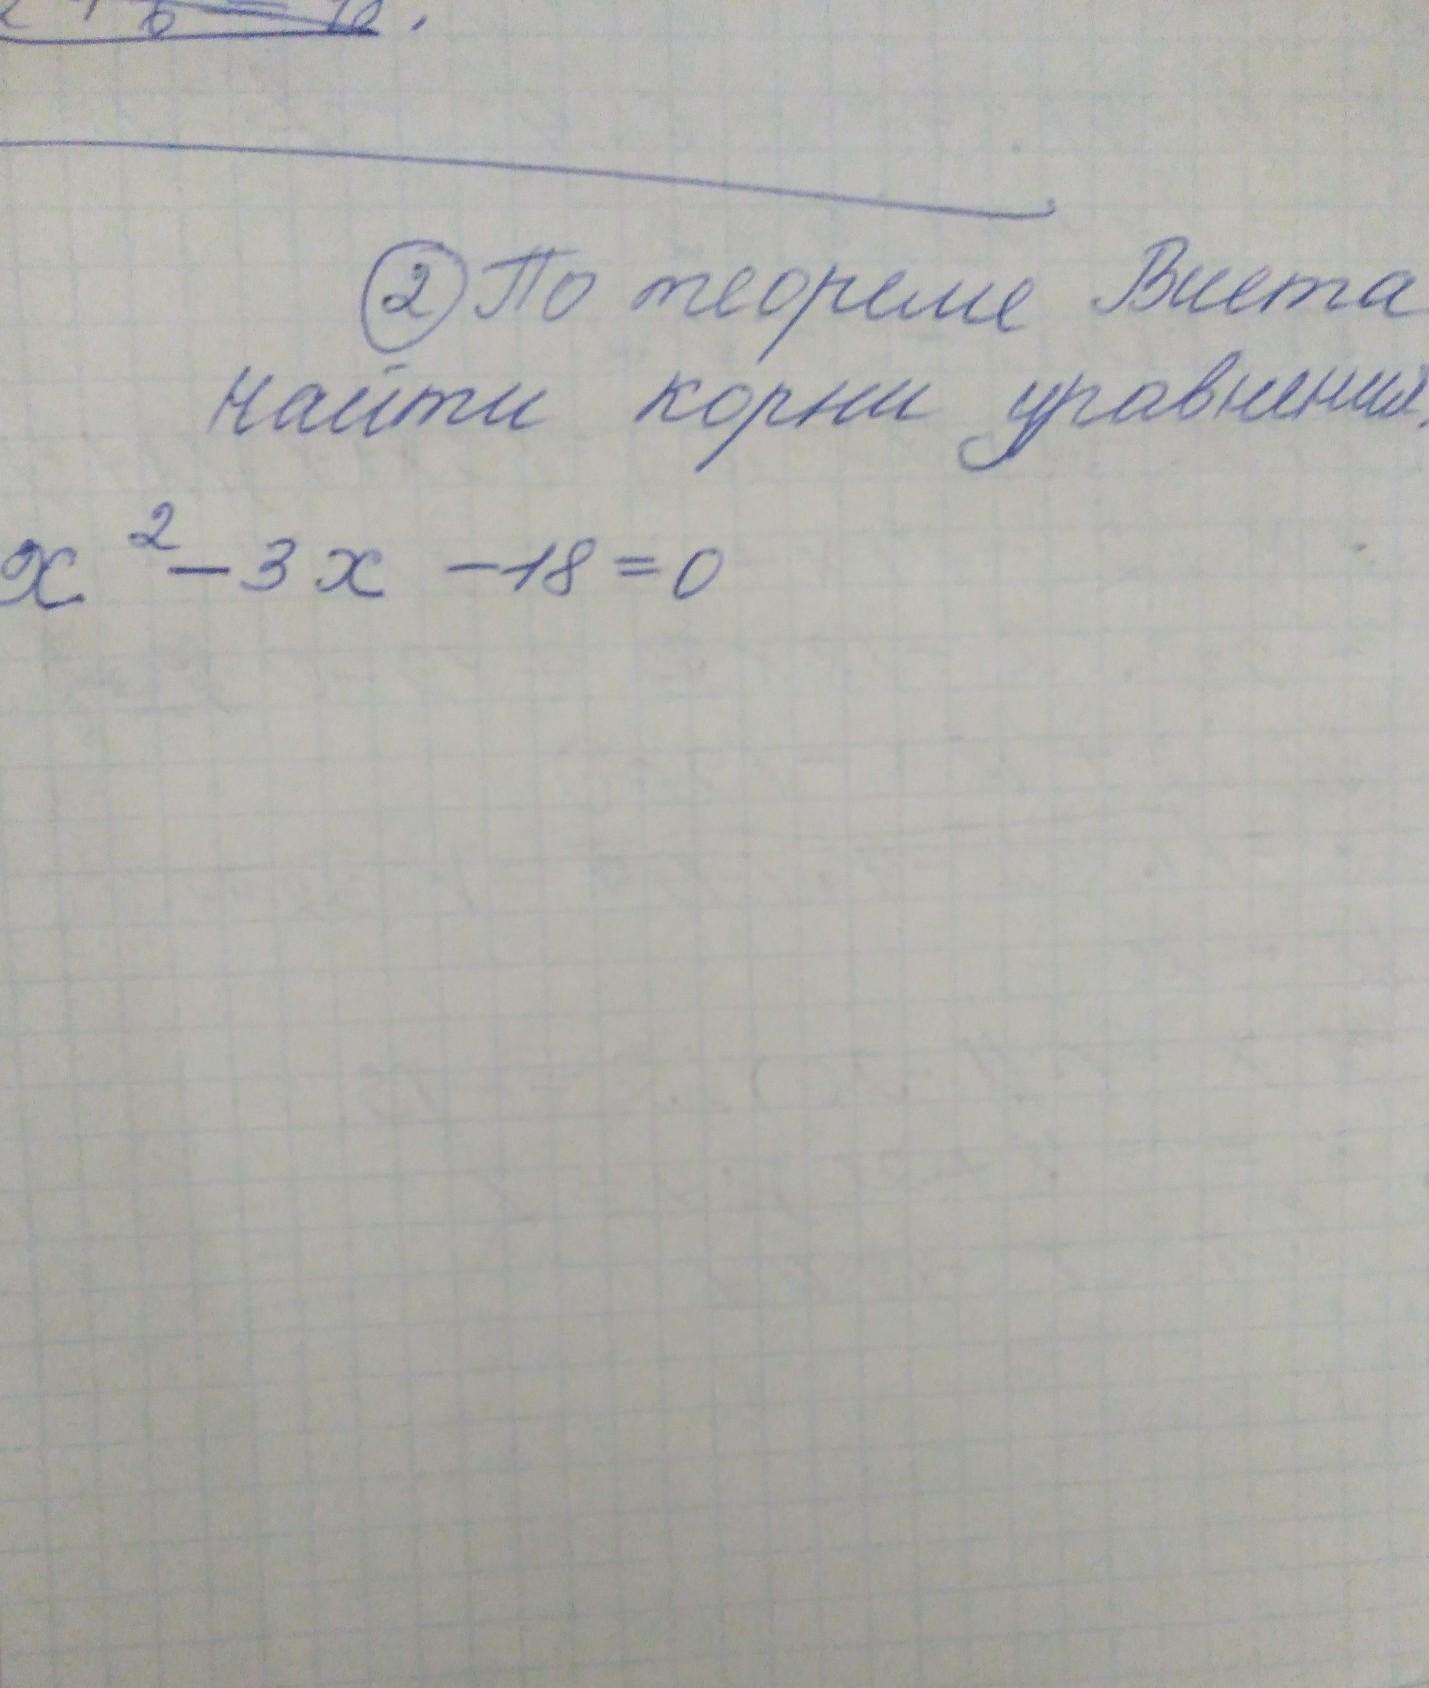 ② По теореме Виета
найти корни уравнения.
x² - 3x - 18 = 0